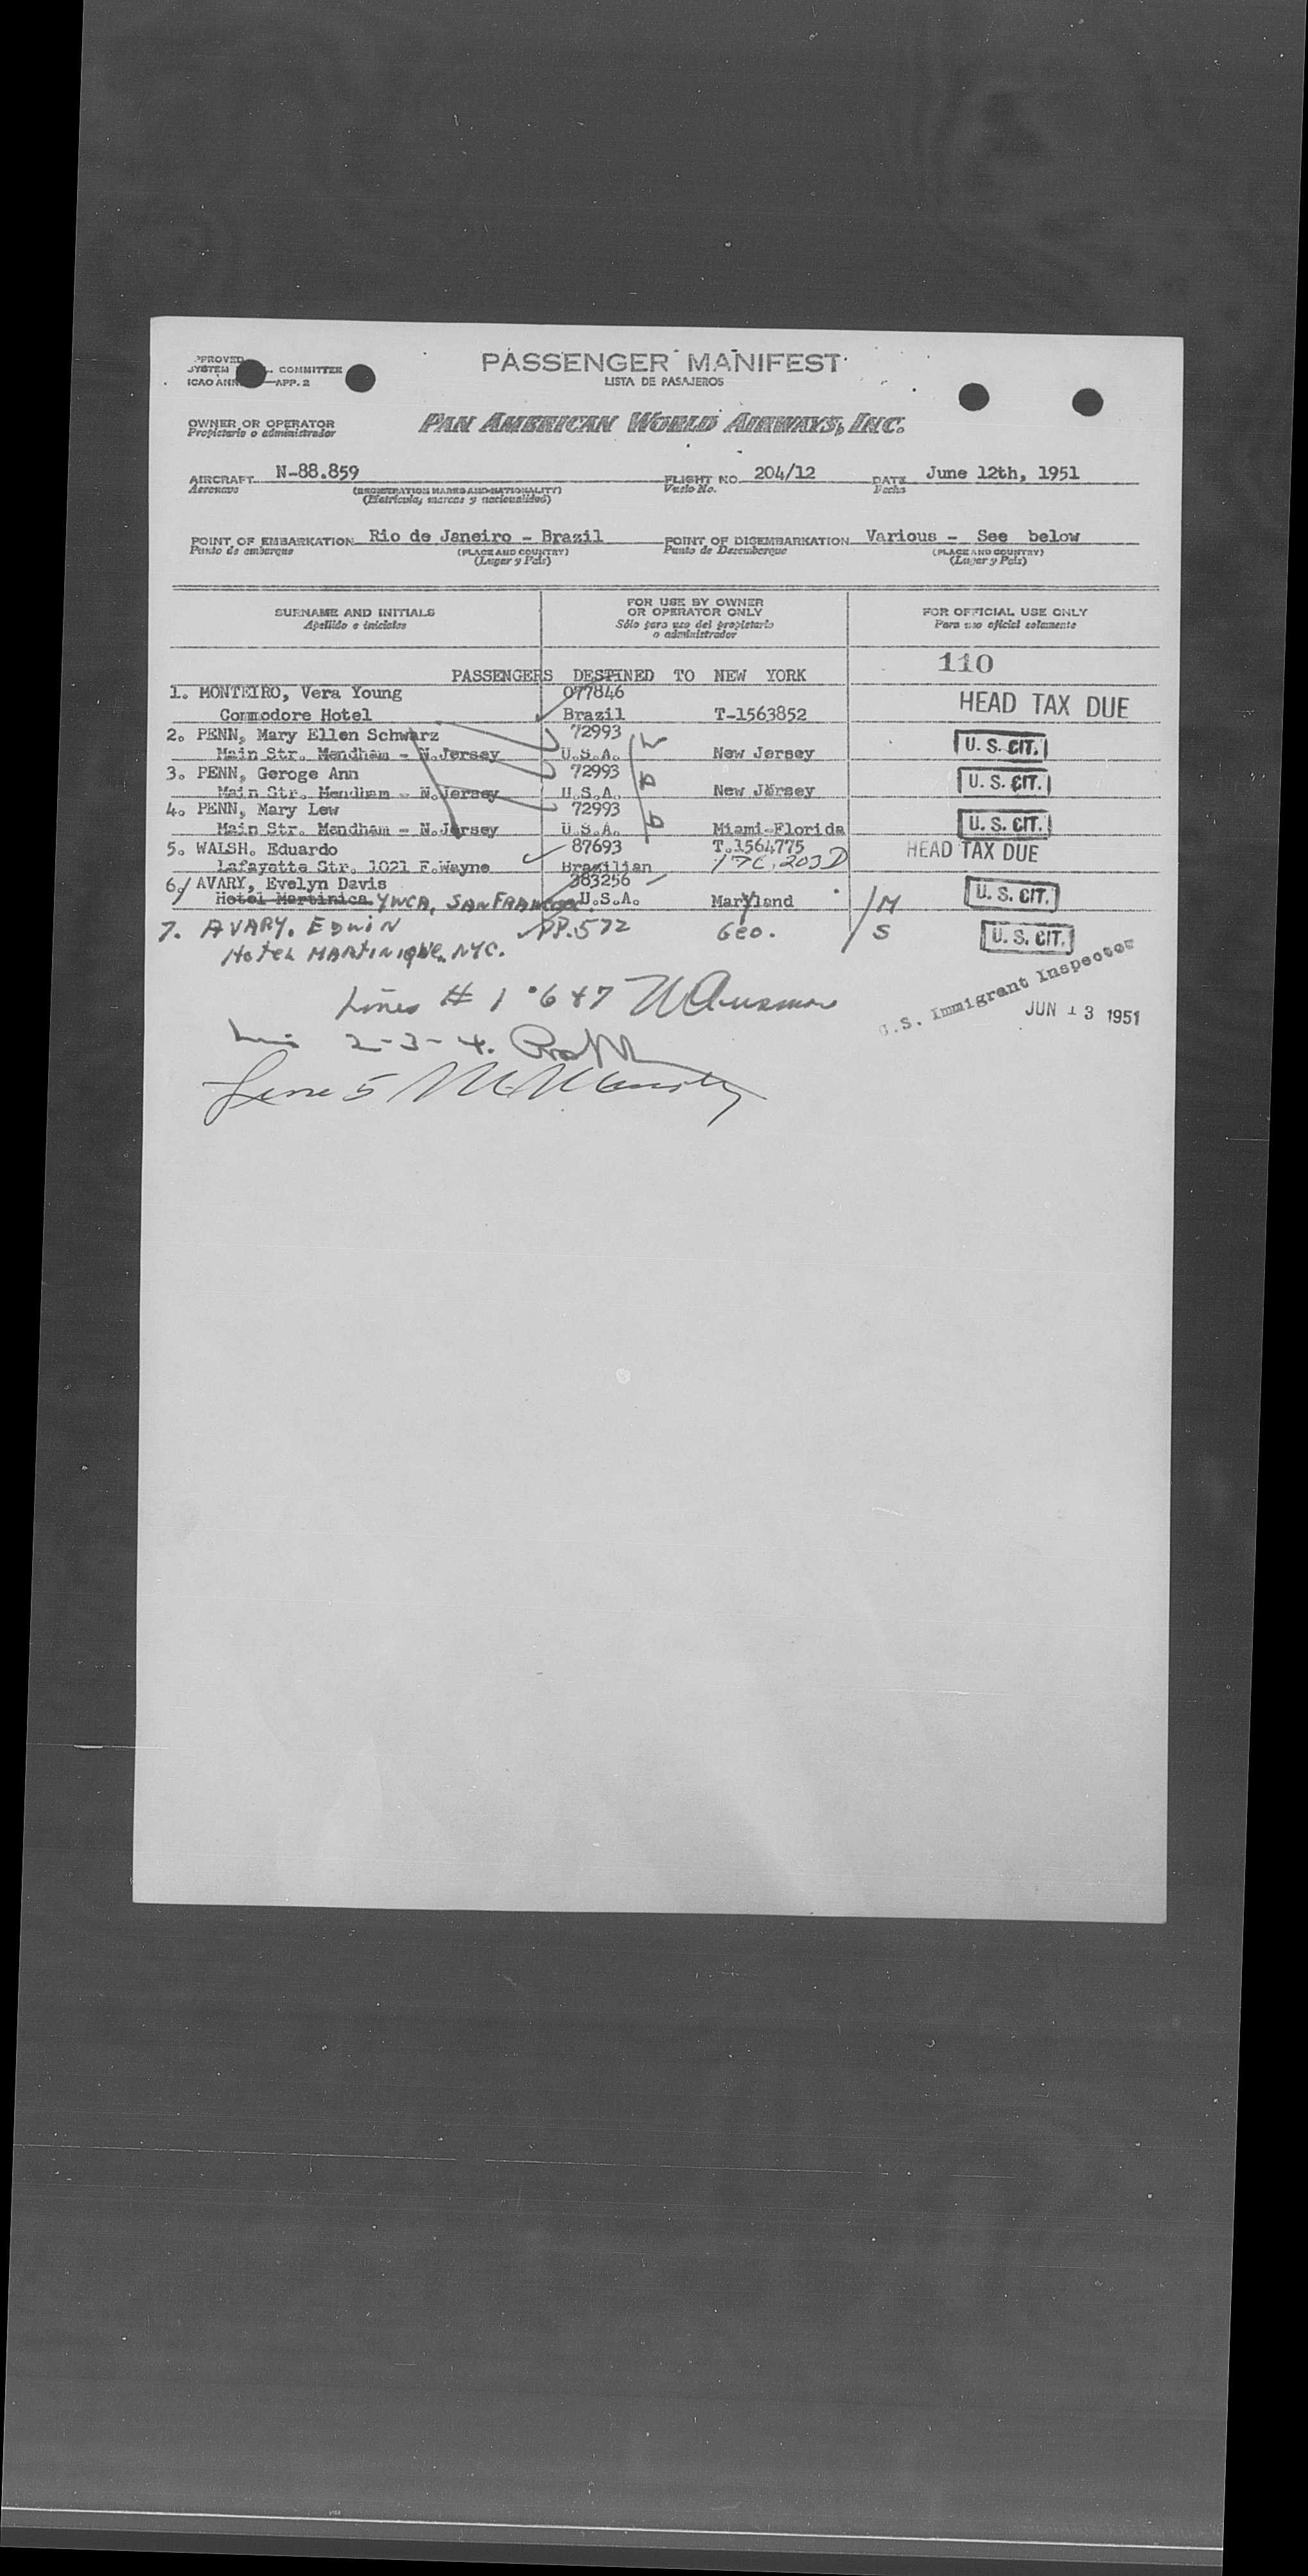 PASSENGER MANIFEST
LISTA DE PASAJEROS
SYSTEM COMMITTEE
ICAO ANN APP. 2
OWNER OR OPERATOR PAN AMERICAN WORLD AIRWAYS, INC.
Propietario o administrador
AIRCRAFT N-88.859 FLIGHT NO. 204/12 DATE June 12th, 1951
Aeronave (REGISTRATION MARKS AND NATIONALITY) Vuelo No. Fecha
(Matricula, marcas y nacionalidad)
POINT OF EMBARKATION Rio de Janeiro - Brazil POINT OF DISEMBARKATION Various - See below
Punto de embarque (PLACE AND COUNTRY) Punto de Desembarque (PLACE AND COUNTRY)
(Lugar y Pais) (Lugar y Pais)
SURNAME AND INITIALS FOR USE BY OWNER OR OPERATOR ONLY FOR OFFICIAL USE ONLY
Apellido e iniciales Sólo para uso del propietario o administrador Para uso oficial solamente
110
PASSENGERS DESTINED TO NEW YORK
1. MONTEIRO, Vera Young 077846 HEAD TAX DUE
Commodore Hotel Brazil T-1563852
2. PENN, Mary Ellen Schwarz 72993 U. S. CIT.
Main Str. Mendham - N.Jersey U.S.A. New Jersey
3. PENN, Geroge Ann 72993 U. S. CIT.
Main Str. Mendham - N.Jersey U.S.A. New Jersey
4. PENN, Mary Lew 72993 U. S. CIT.
Main Str. Mendham - N.Jersey U.S.A. Miami-Florida
5. WALSH. Eduardo 87693 T.1564775 HEAD TAX DUE
Lafayette Str. 1021 F.Wayne Brazilian
6. AVARY, Evelyn Davis 383256 U. S. CIT.
Hotel Martinica YWCA, SAN FRANCISCO U.S.A. Maryland M
7. AVARY. EDWIN PP.572 Geo. S U. S. CIT.
Hotel MARTINIQUE, NYC.
U.S. Immigrant Inspector
Lines # 1 6 + 7
JUN 13 1951
2-3-4.
Line 5